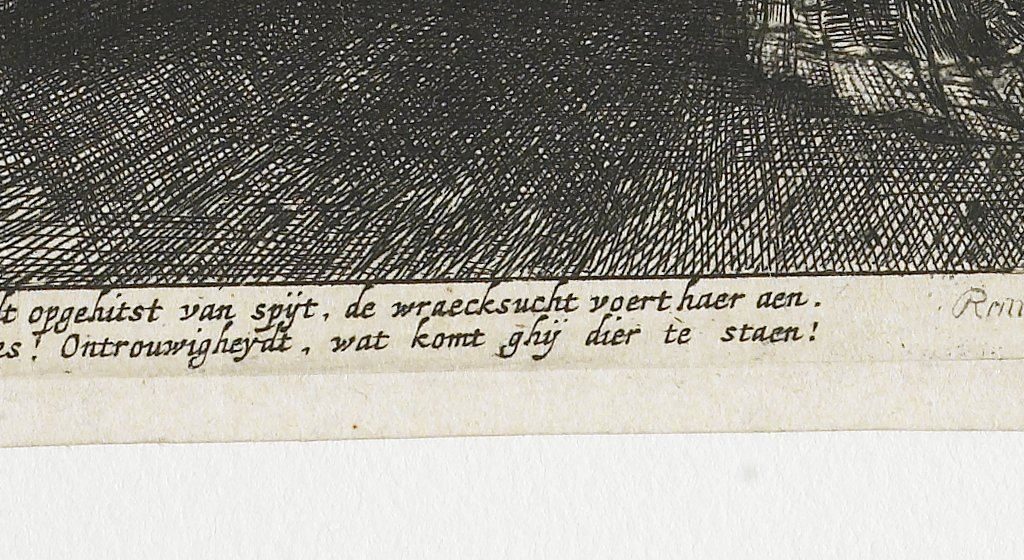 opgehitst van spijt, de wraecksucht voert haer aen.
Ontrouwigheydt, wat komt ghij dier te staen!